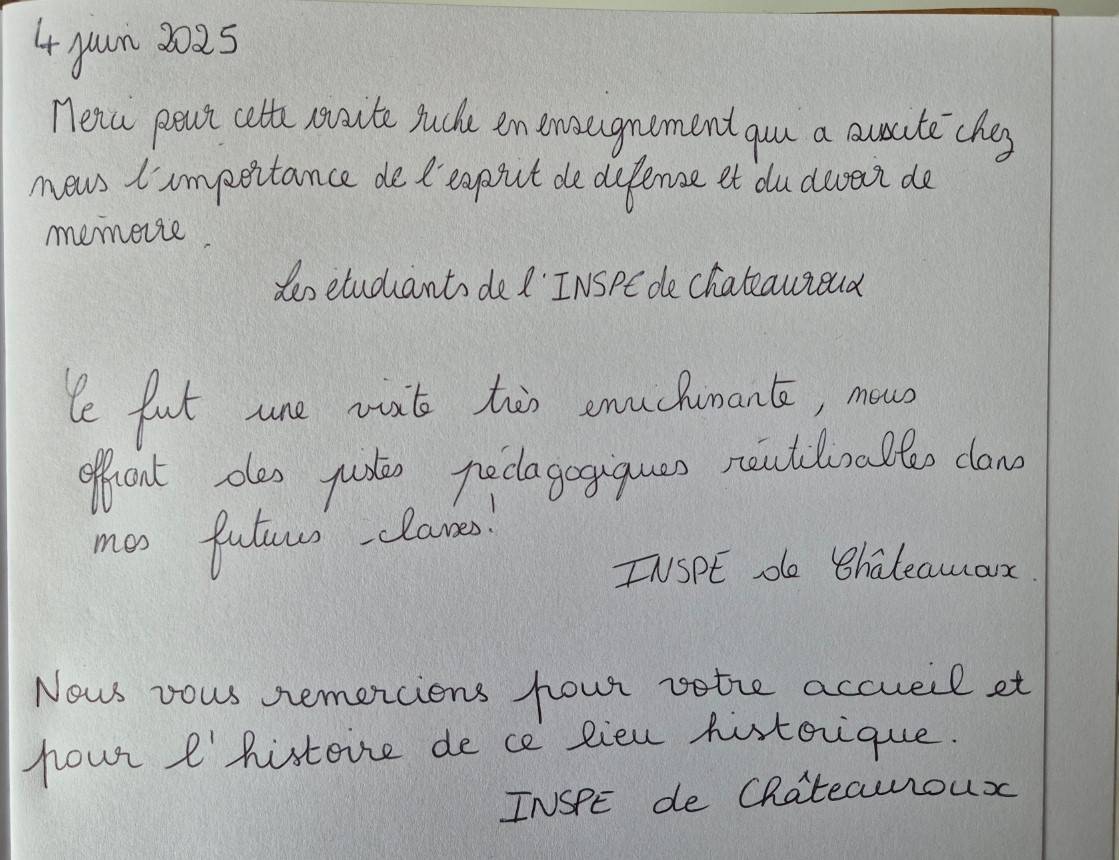 4 juin 2025
Merci pour cette visite riche en enseignement qui a suscité chez
nous l'importance de l'esprit de défense et du devoir de
mémoire.
Les étudiants de l'INSPE de Châteauroux
Ce fut une visite très enrichissante, nous
offrant des pistes pédagogiques réutilisables dans
nos futures classes!
INSPE de Châteauroux.
Nous vous remercions pour votre accueil et
pour l'histoire de ce lieu historique.
INSPE de Châteauroux